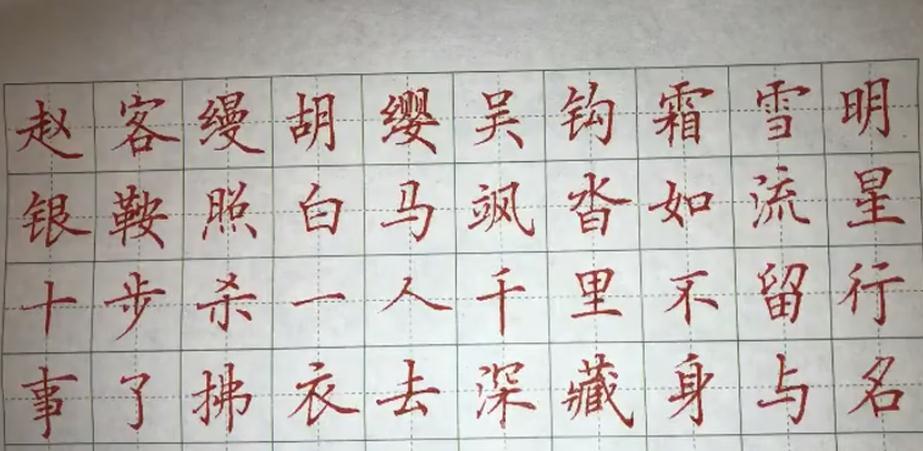 赵客缦胡缨吴钩霜雪明
银鞍照白马飒沓如流星
十步杀一人千里不留行
事了拂衣去深藏身与名